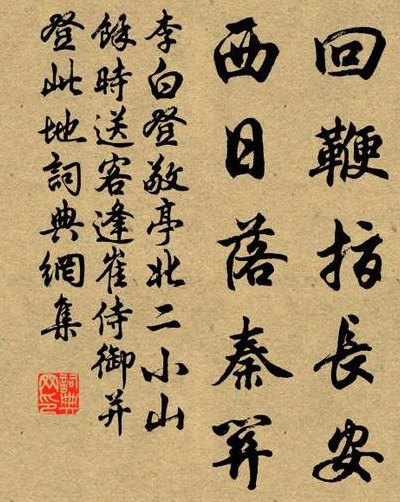 回鞭指長安
西日落秦關
李白登敬亭北二小山
餘時送客逢崔侍御并
登此地詞典網集
詞典网印